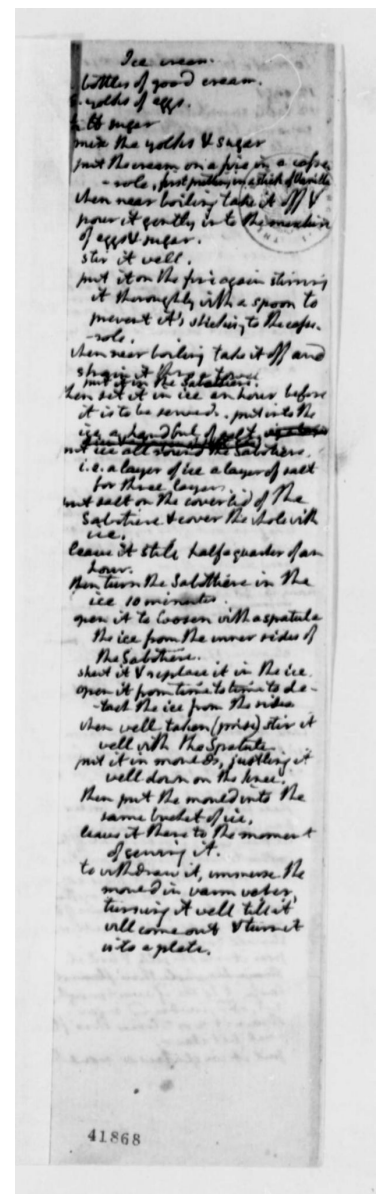 Ice cream.
bottles of good cream.
yolks of eggs.
lb sugar
mix the yolks & sugar
put the cream on a fire in a casse-
-role, first putting in a stick of Vanilla.
when near boiling take it off &
pour it gently into the mixture
of eggs & sugar.
stir it well.
put it on the fire again stirring
it thoroughly with a spoon to
prevent it's sticking to the casse-
-role.
when near boiling take it off and
strain it thro' a towel.
put it in the Sabottiere.
then set it in ice an hour before
it is to be served. put into the
ice a handful of salt.
put ice all around the Sabottiere.
i.e. a layer of ice a layer of salt
for three layers.
put salt on the coverlid of the
Sabotiere & cover the whole with
ice.
leave it still half a quarter of an
hour.
then turn the Sabottiere in the
ice 10 minutes
open it to loosen with a spatula
the ice from the inner sides of
the Sabotiere.
shut it & replace it in the ice
open it from time to time to de-
-tach the ice from the sides
when well taken (prise) stir it
well with the Spatula.
put it in moulds, justling it
well down on the knee.
then put the mould into the
same bucket of ice.
leave it there to the moment
of serving it.
to withdraw it, immerse the
mould in warm water,
turning it well till it
will come out & turn it
into a plate.
41868